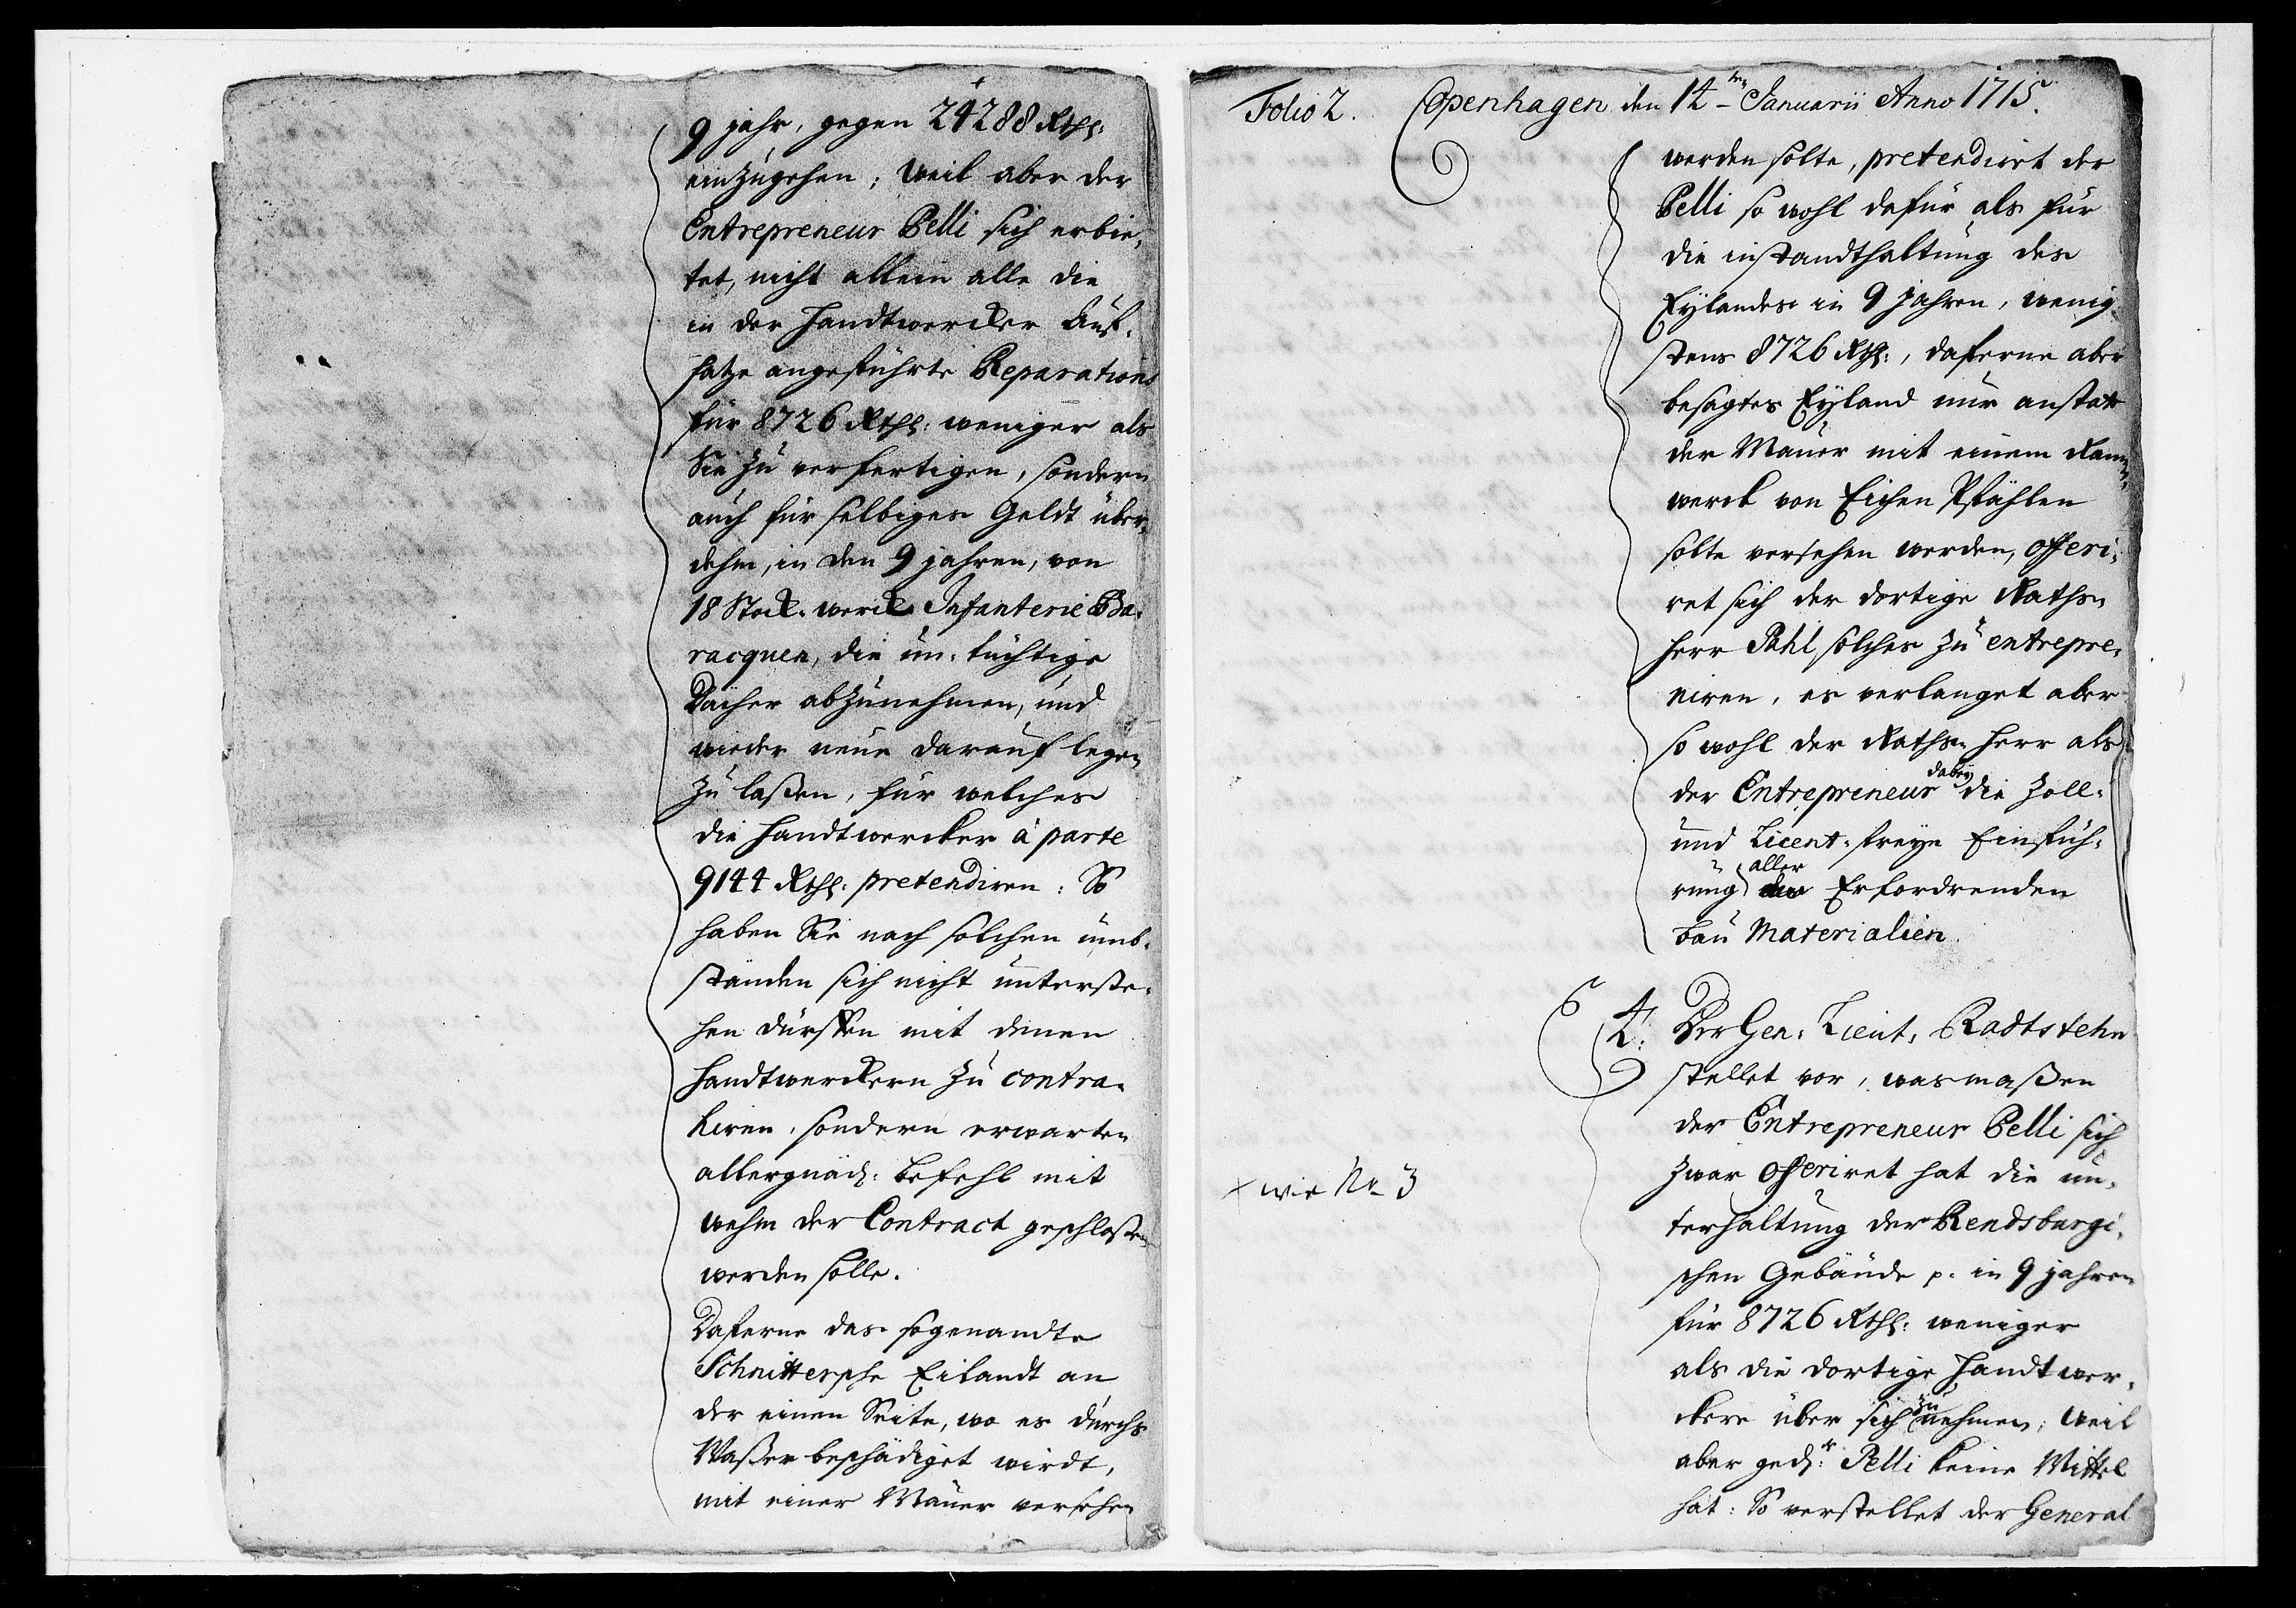 9 jahr, gegen 24288 Rthl:
einzugehen; Weil aber der
Entrepreneur Pelli sich erbie,
tet, nicht allein alle die
in der Handtwercker Auf,
satze angeführte Reparations
für 8726 Rthl: weniger als
Sie zu verfertigen, sondern
auch für selbiges Geldt über,
dehm, in den 9 jahren, von
18 Stock-werck Infanterie Ba-
racquen, die un-tüchtige
Dächer abzunehmen, und
wieder neue darauf legen
zu laßen, für welches
die Handtwercker à parte
9144 Rthl: pretendiren: So
haben Sie nach solchen umb-
ständen sich nicht unterste-
hen dürffen mit denen
Handtwerckern zu contra-
hiren, sondern erwarten
allergnäd: Befehl mit
wehm der Contract geschloßen
werden solle.
Daferne das sogenandte
Schnittersche Eilandt an
der einen Seite, wo es durchs
Waßer beschädiget wirdt,
mit einer Mauer versehen
Folio 2. Copenhagen den 14ten Januarii Anno 1715.
werden solte, pretendirt der
Pelli so wohl dafür als für
die instandthaltung des
Eylandes in 9 jahren, wenig
stens 8726 Rthl:, daferne aber
besagtes Eyland nur anstatt
der Mauer mit einem Ram-
werck von Eichen Pfählen
solte versehen werden, offeri-
ret sich der dortige Raths-
herr Pahl solches zu entrepre-
niren, es verlanget aber
so wohl der Raths-herr als
der Entrepreneur dabey die Zoll-
und Licent-freye Einfüh-
rung aller Erfordrenden
bau Materialien.
4. Der Gen: Lieut: Radtstehn
stellet vor, was maßen
der Entrepreneur Pelli sich
zwar offeriret hat die un-
terhaltung der Rendsburgi-
schen Gebäude p. in 9 jahren
für 8726 Rthl: weniger
× wie No 3
als die dortige Handtwer-
ckere über sich zu nehmen; weil
aber gedr: Pelli keine Mittel
hat: So verstellet der General